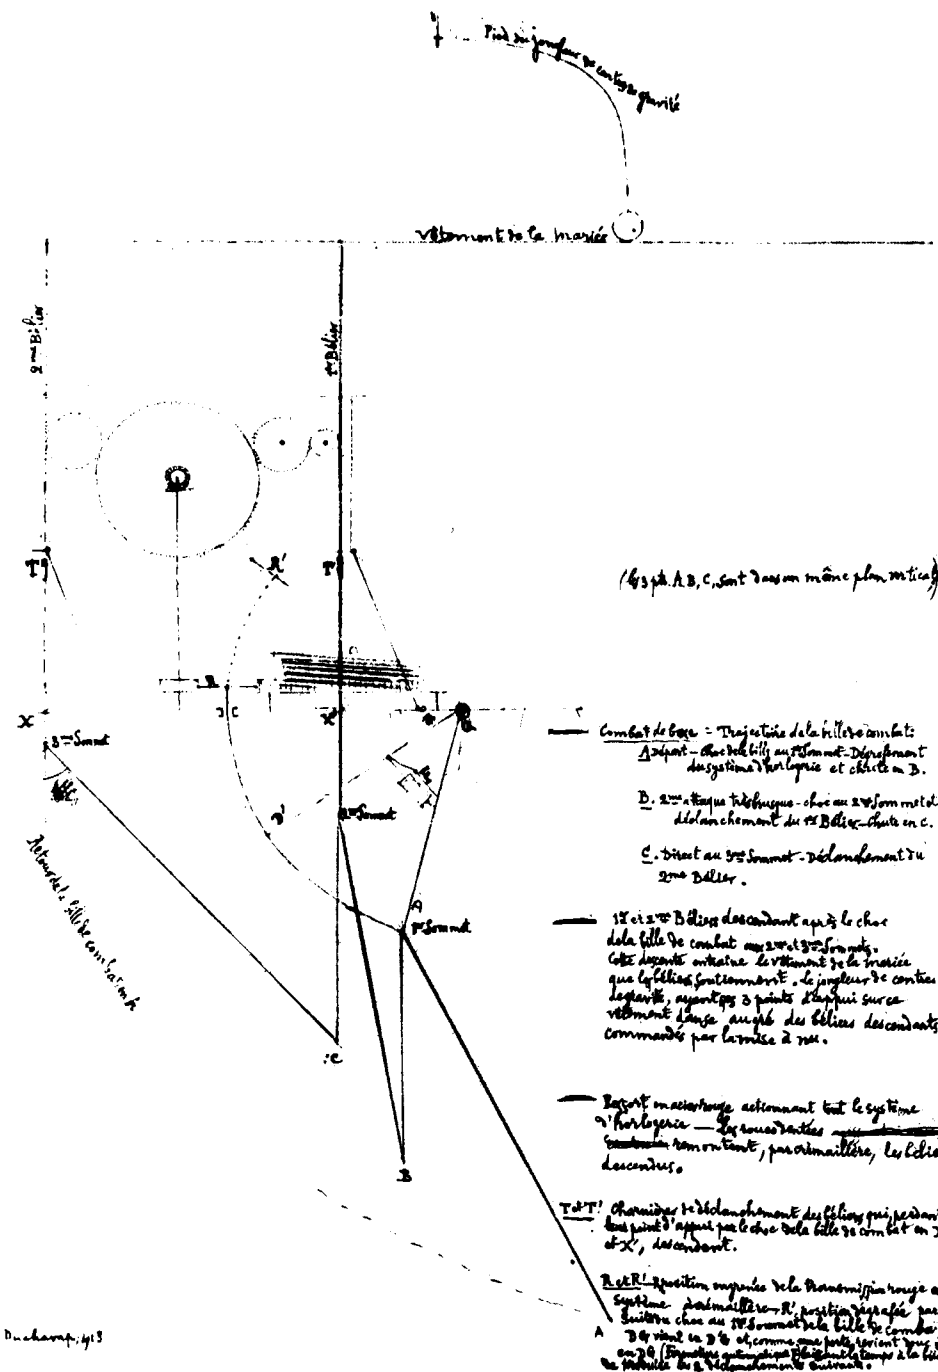 Pied du jongleur de centres de gravité
Vêtement de la mariée
2me Bélier
1er Bélier
R'
T'
T
(les 3 pts. A, B, C, sont dans un même plan vertical)
R
C
X
X'
3me Sommet
E
D'
2me Sommet
A
1er Sommet
Retour de la bille de combat
C
B
A
Combat de boxe = Trajectoire de la bille de combat:
A départ - choc de la bille au 1er Sommet - Dégrafement
du système d'horlogerie et chute en B.
B. 2me attaque très brusque - choc au 2me Sommet et
déclanchement du 1er Bélier - chute en C.
C. Direct au 3me Sommet - Déclanchement du
2me Bélier.
1er et 2me Béliers descendant après le choc
de la bille de combat aux 2me et 3me Sommets.
Cette descente entraîne le vêtement de la mariée
que les béliers soutiennent. Le jongleur de centres
de gravité, ayant ses 3 points d'appui sur ce
vêtement danse au gré des béliers descendants
commandés par la mise à nu.
Ressort en acier rouge actionnant tout le système
d'horlogerie — Les roues dentées
remontent, par crémaillère, les béliers
descendus.
T et T' Charnières de déclanchement des béliers qui, perdant
leur point d'appui par le choc de la bille de combat en X
et X', descendent.
R et R' position engrenée de la transmission rouge
système à crémaillère - R', position dégrafée par
suite du choc au 1er Sommet de la bille de combat
DG vient en D'G et, comme une porte, revient
en DG (Fermeture automatique) laissant le temps à la bille
de les 2 déclanchements suivants
Duchamp, 1913